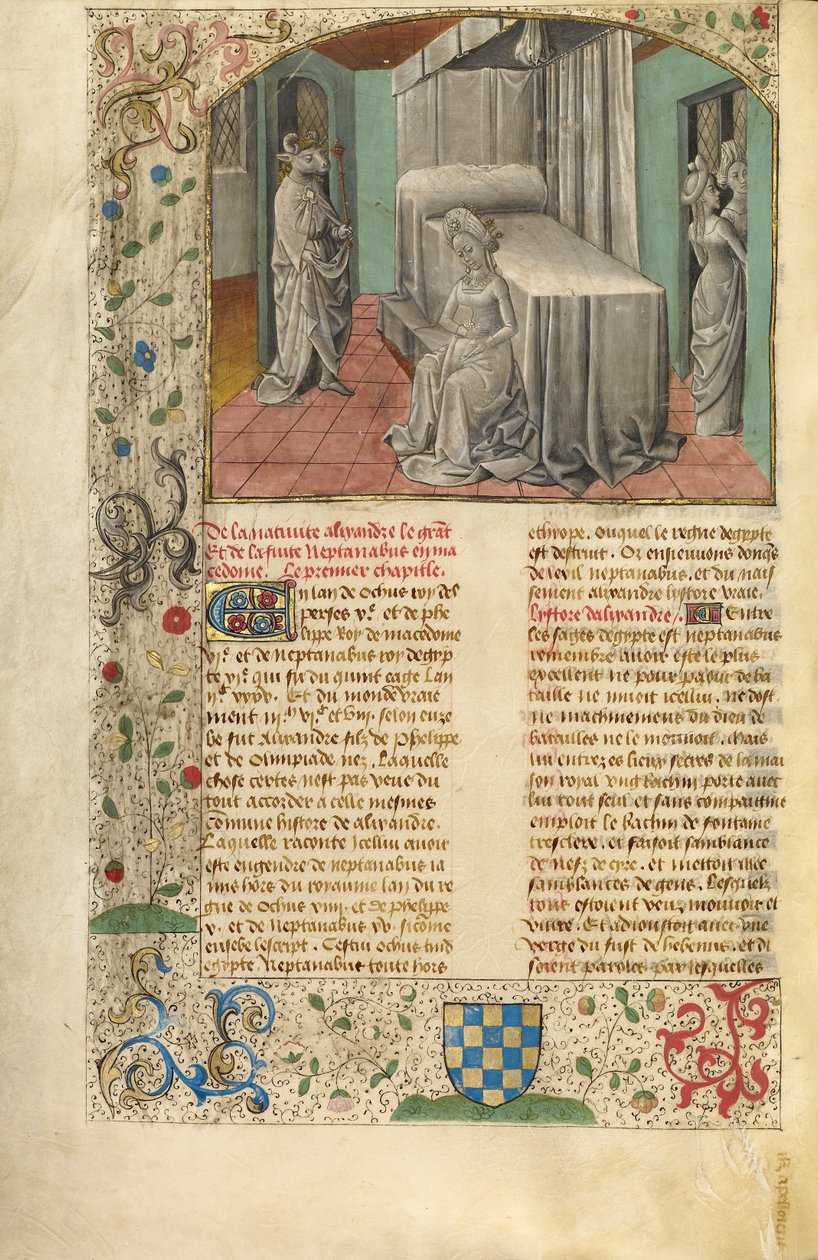 De la natiuite alixandre le grāt
Et de la fuite Neptanabus en ma
cedome. Le premier chapitle.
En lan de Ochus roy des
perses v.e et de phe
lippe Roy de macedome
vi.e et de Neptanabus roy degyp
te vi.e qui fu du quint eage lan
Et du monde vraie
ment selon euze
be fut alixandre filz de Phelippe
et de Olimpiade nez. Laquelle
chose certes nest pas veue du
tout accorder a celle mesmes
comune histore de alixandre.
Laquelle raconte icellui auoir
este engendre de neptanabus ia
mis hors du royaume lan du re
gne de Ochus xiiii. et de phelippe
v. et de Neptanabus xv. sicōme
eusebe lescript. Cestui ochus
egypte Neptanabus toute hors
ethiope. ouquel le regne degypte
est destruit. Or ensieuuons donqs
de lexil neptanabus. et du nais
sement alixandre lystore vraie.
Lystore dalixandre. Entre
les sages degypte est neptanabus
remembre auoir este le plus
excellent ne pour paour de ba
taille ne muoit icellui. ne dost
ne machinemens du dieu de
batailles ne le mouuoit. Mais
lui entre es lieux secres de la mai
son royal vng bachin porte auec
lui tout seul et sans compaignie
emploit le bachin de fontaine
tresclere. et faisoit samblance
de nefz de cyre. et mettoit
samblances de gens. Lesquelz
tous estoient veuz mouuoir et
viure. Et adioustoit auec vne
verge du fust de hebenus. et di
soient paroles par lesquelles